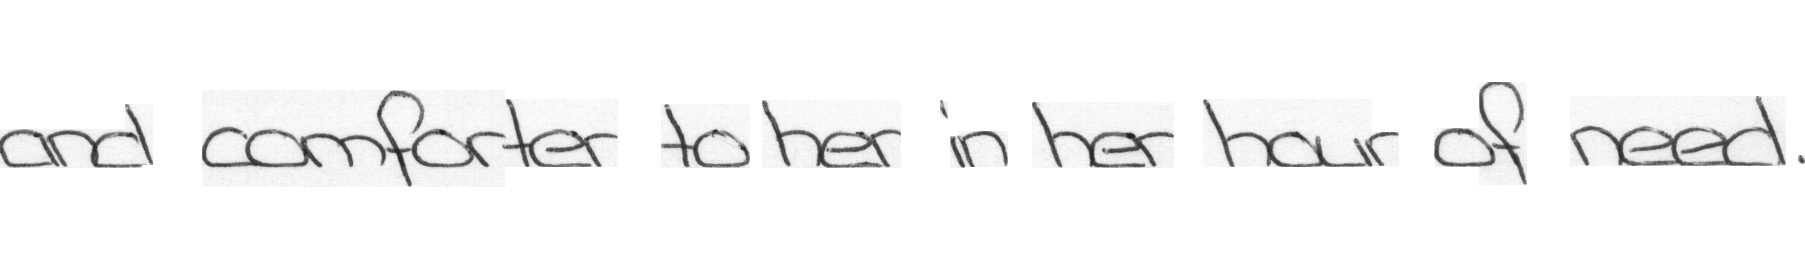 and comforter to her in her hour of need.